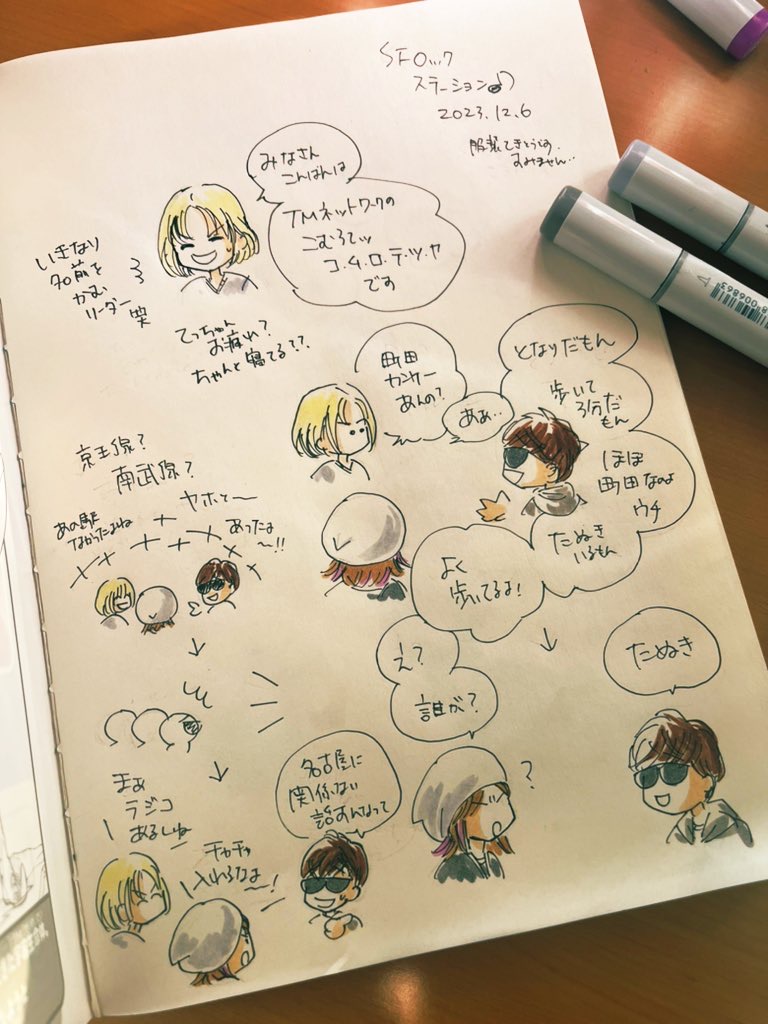 SFロック
ステーション♪
2023.12.6
服装てきとうです
すみません…
みなさん
こんばんは
TMネットワークの
こむろてッ
コ.ム.ロ.テ.ツ.ヤ
です
いきなり
名前を
かむ
リーダー笑
てっちゃん
お疲れ?
ちゃんと寝てる??
町田
カンケー
あんの?
あぁ…
となりだもん
歩いて
3分だ
もん
ほぼ
町田なのよ
ウチ
たぬき
いるもん
よく
歩いてるよ!
え?
誰が?
?
たぬき
京王線?
南武線?
ヤホて〜
あの駅
なかったよね
あったよ
〜!!
まぁ
ラジコ
あるしね
チャチャ
入れるなよ
〜!
名古屋に
関係ない
話すんなって